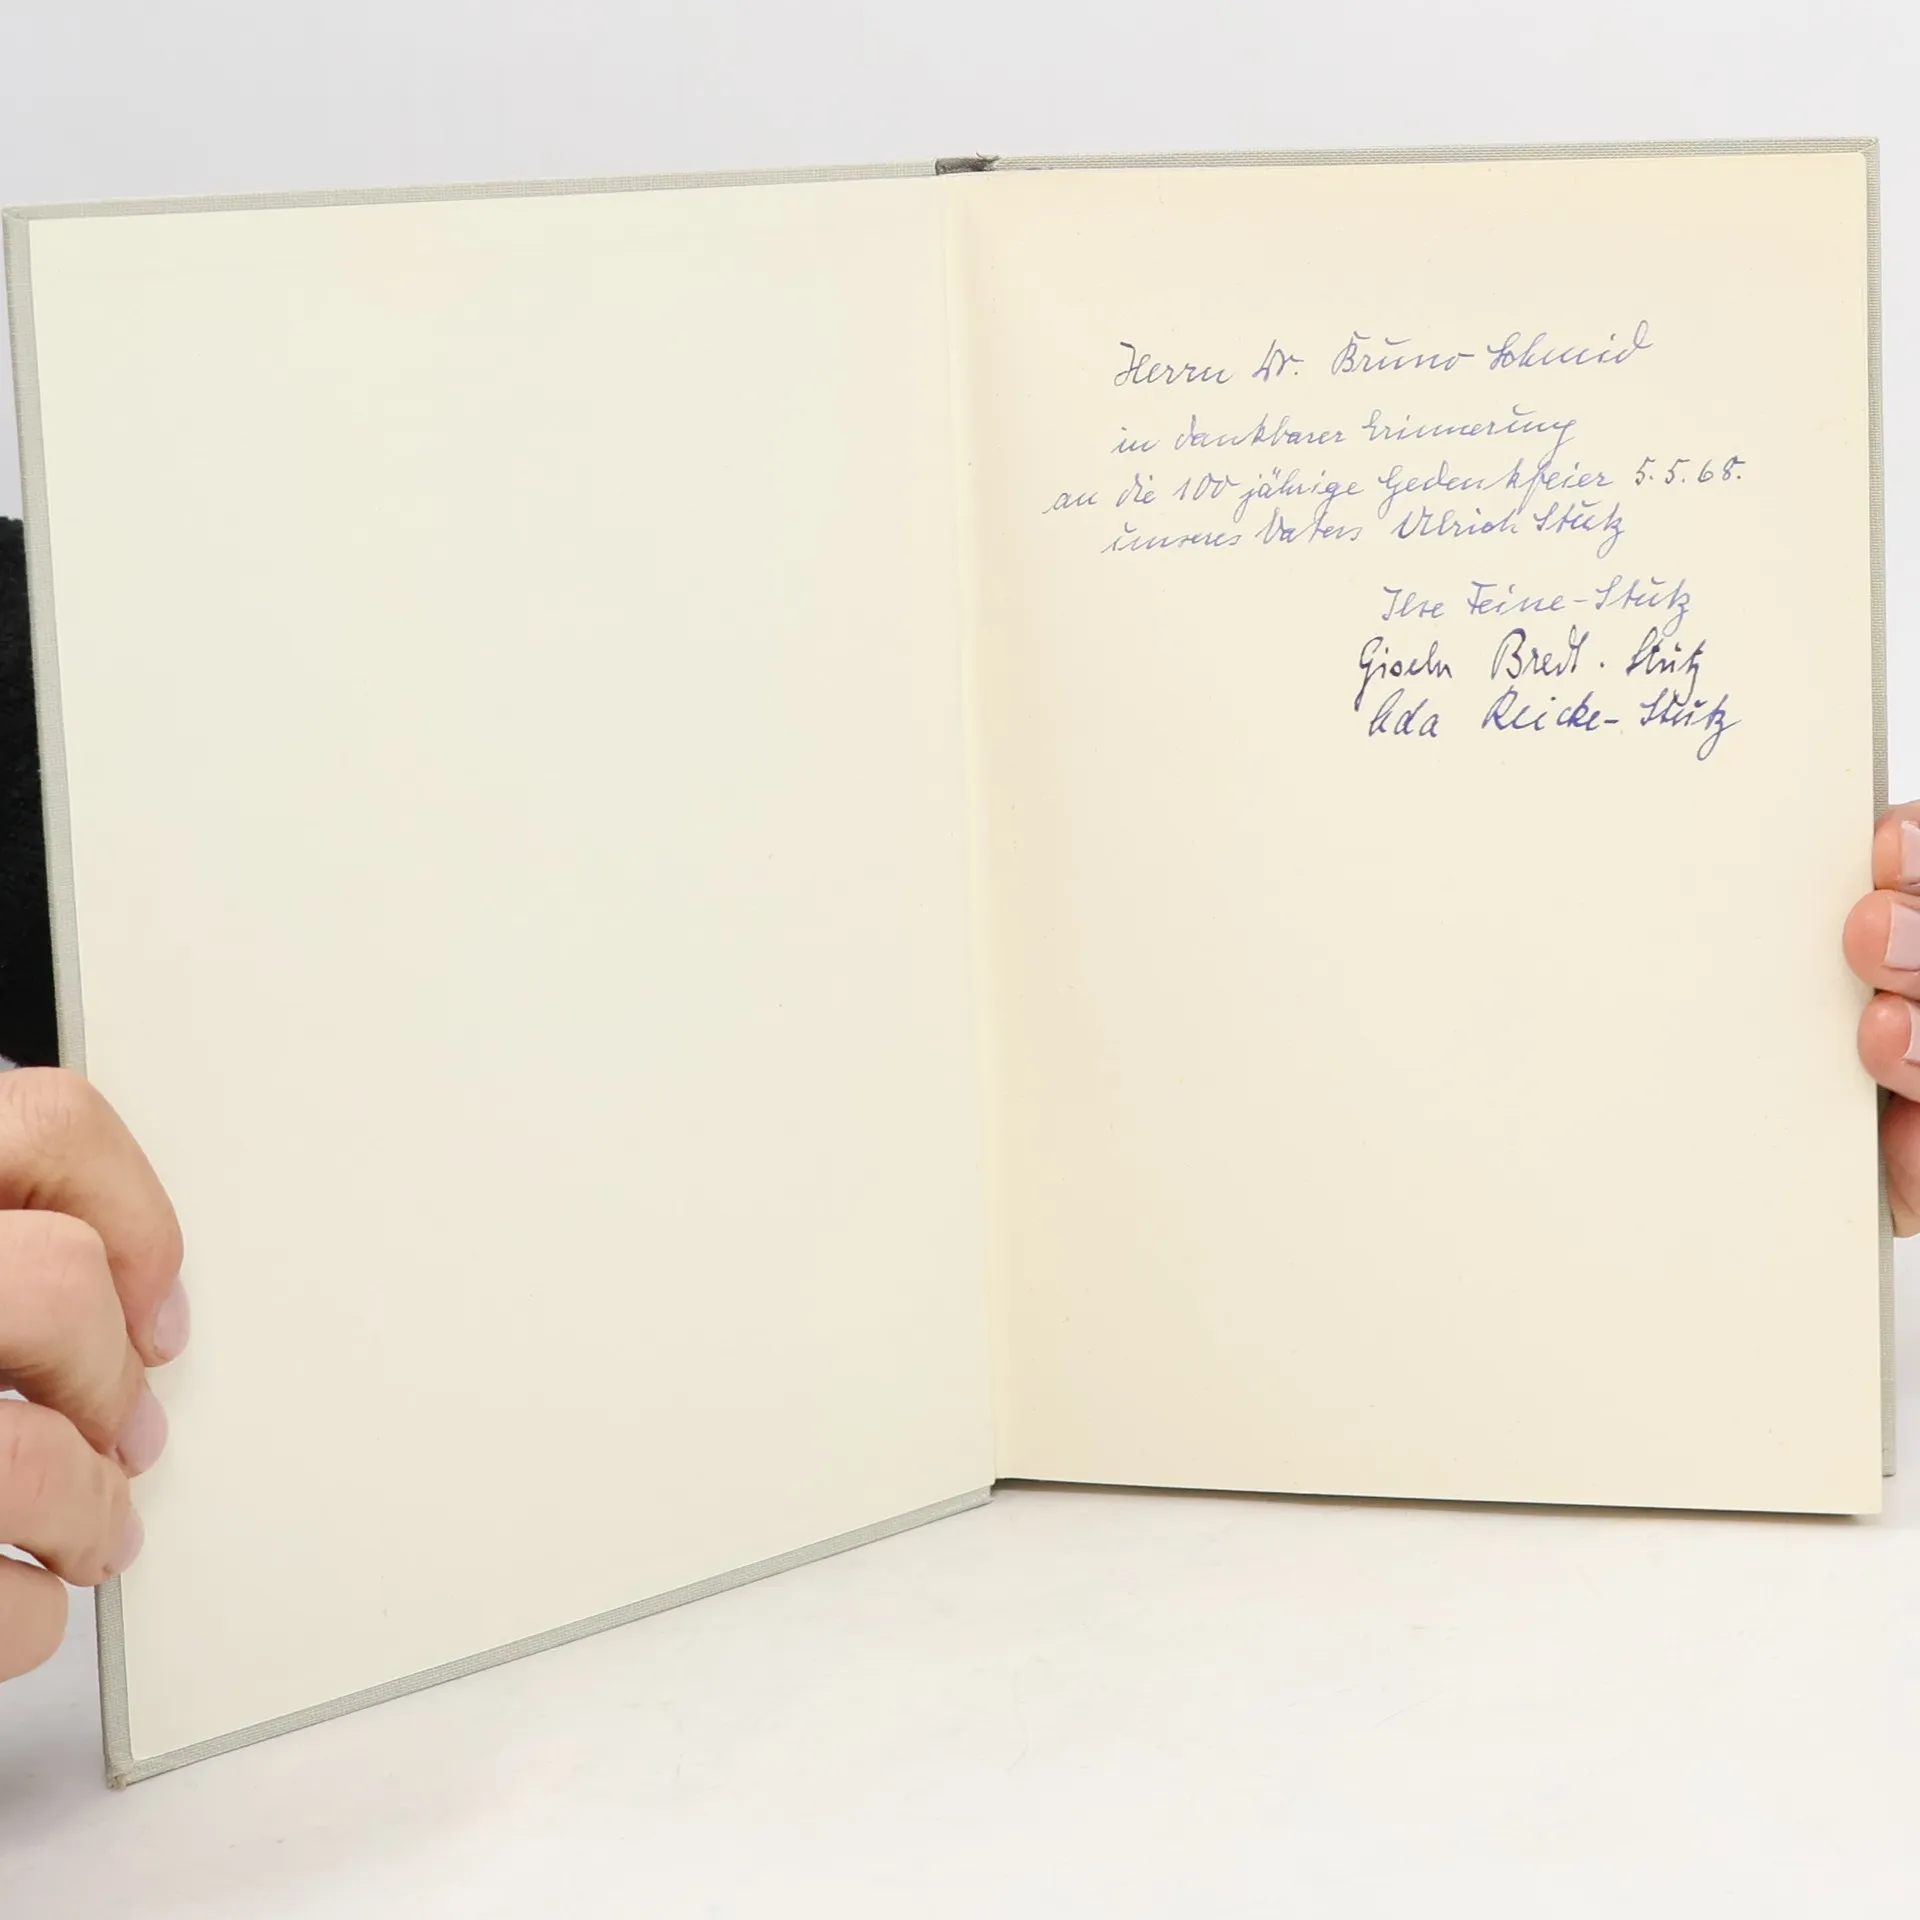 Herrn Dr. Bruno Schmid
in dankbarer Erinnerung
an die 100 jährige Gedenkfeier 5.5.68.
unseres Vaters Ulrich Stutz
Ilse Feine-Stutz
Gisela Bredt-Stutz
Ada Reicke-Stutz